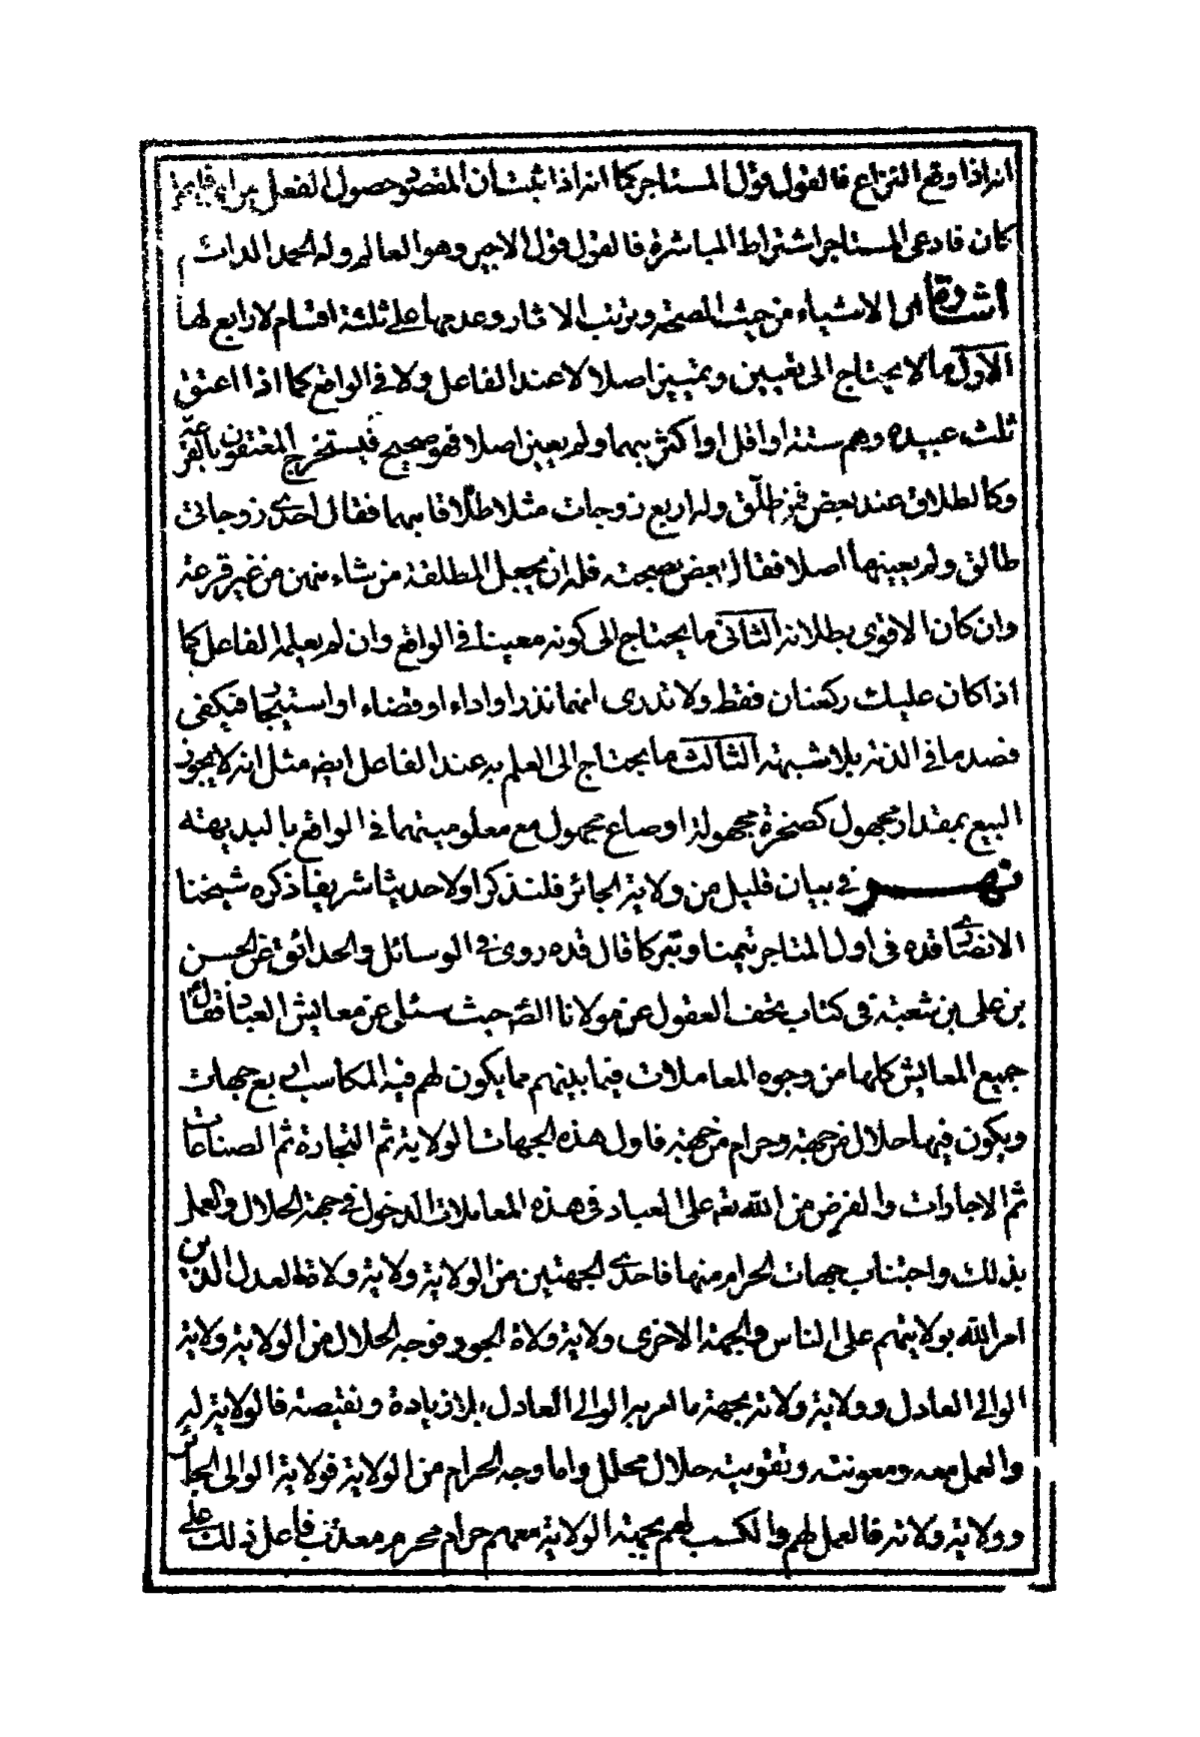 انه اذا وقع النزاع فالقول قول المستاجر كما انه اذا ثبت ان المقصود حصول الفعل من اى فاعل
كان فادعى المستاجر اشتراط المباشرة فالقول قول الاجير وهو العالم وله الحمد الدائم
اشارة الاشياء من حيث الصحة وترتب الاثار وعدمها على ثلثة اقسام لا رابع لها
الاول ما لا يحتاج الى تعيين وتميين اصلا لا عند الفاعل ولا فى الواقع كما اذا اعتق
ثلث عبيده وهم ستة او اقل او اكثر مبهما ولم يعين اصلا فهو صحيح فيستخرج المعتقون بالقرعة
وكالطلاق عند بعض فمن طلّق وله اربع زوجات مثلا طلاقا مبهما فقال احدى زوجاتى
طالق ولم يعينها اصلا فقال بعض بصحته فله ان يجعل المطلقة من شاء منهن من غير قرعة
وان كان الاقوى بطلانه الثانى ما يحتاج الى كونه معينا فى الواقع وان لم يعلمه الفاعل كما
اذا كان عليك ركعتان فقط ولا تدرى انهما نذر او اداء او قضاء او استيجار فتكفى
قصد ما فى الذمة بلا شبهة الثالث ما يحتاج الى العلم به عند الفاعل ايضه مثل انه لا يجوز
البيع بمقدار مجهول كصخرة مجهولة او صاع مجهول مع معلوميتهما فى الواقع بالبديهة
نهر فى بيان قليل من ولاية الجائر فلنذكر اولا حديثا شريفا ذكره شيخنا
الانصارى قده فى اول المتاجر تيمنا وتبركا قال قده روى فى الوسائل والحدائق عن الحسن
بن على بن شعبة فى كتاب تحف العقول عن مولانا الصّ حيث سئل عن معايش العباد فقال
جميع المعايش كلها من وجوه المعاملات فيما بينهم مما يكون لهم فيه المكاسب اربع جهات
ويكون فيها حلال من جهة وحرام من جهة فاول هذه الجهات الولاية ثم التجارة ثم الصناعات
ثم الاجارات والفرض من الله تعه على العباد فى هذه المعاملات الدخول فى جهة الحلال والعمل
بذلك واجتناب جهات الحرام منها فاحدى الجهتين من الولاية ولاية ولاة العدل الذين
امر الله بولايتهم على الناس والجهة الاخرى ولاية ولاة الجور فوجه الحلال من الولاية ولاية
الوالى العادل وولاية ولاته بجهة ما امر به الوالى العادل بلا زيادة ونقيصة فالولاية له
والعمل معه ومعونته وتقويته حلال محلل واما وجه الحرام من الولاية فولاية الوالى الجائر
وولاية ولاته فالعمل لهم والكسب لهم بجهة الولاية معهم حرام محرم معذب فاعل ذلك على